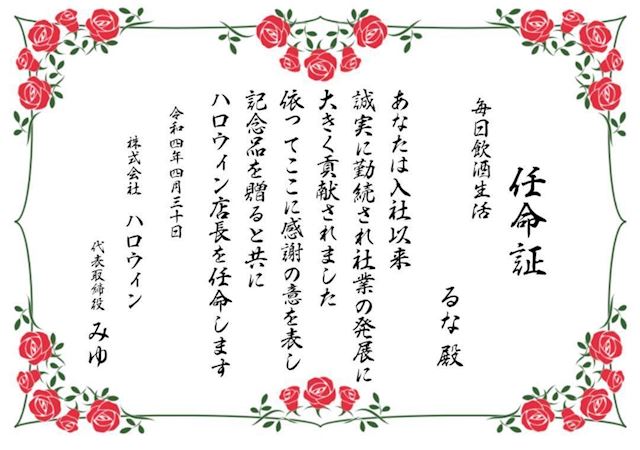 任命証
毎日飲酒生活
るな 殿
あなたは入社以来
誠実に勤続され社業の発展に
大きく貢献されました
依ってここに感謝の意を表し
記念品を贈ると共に
ハロウィン店長を任命します
令和四年四月三十日
株式会社 ハロウィン
代表取締役 みゆ